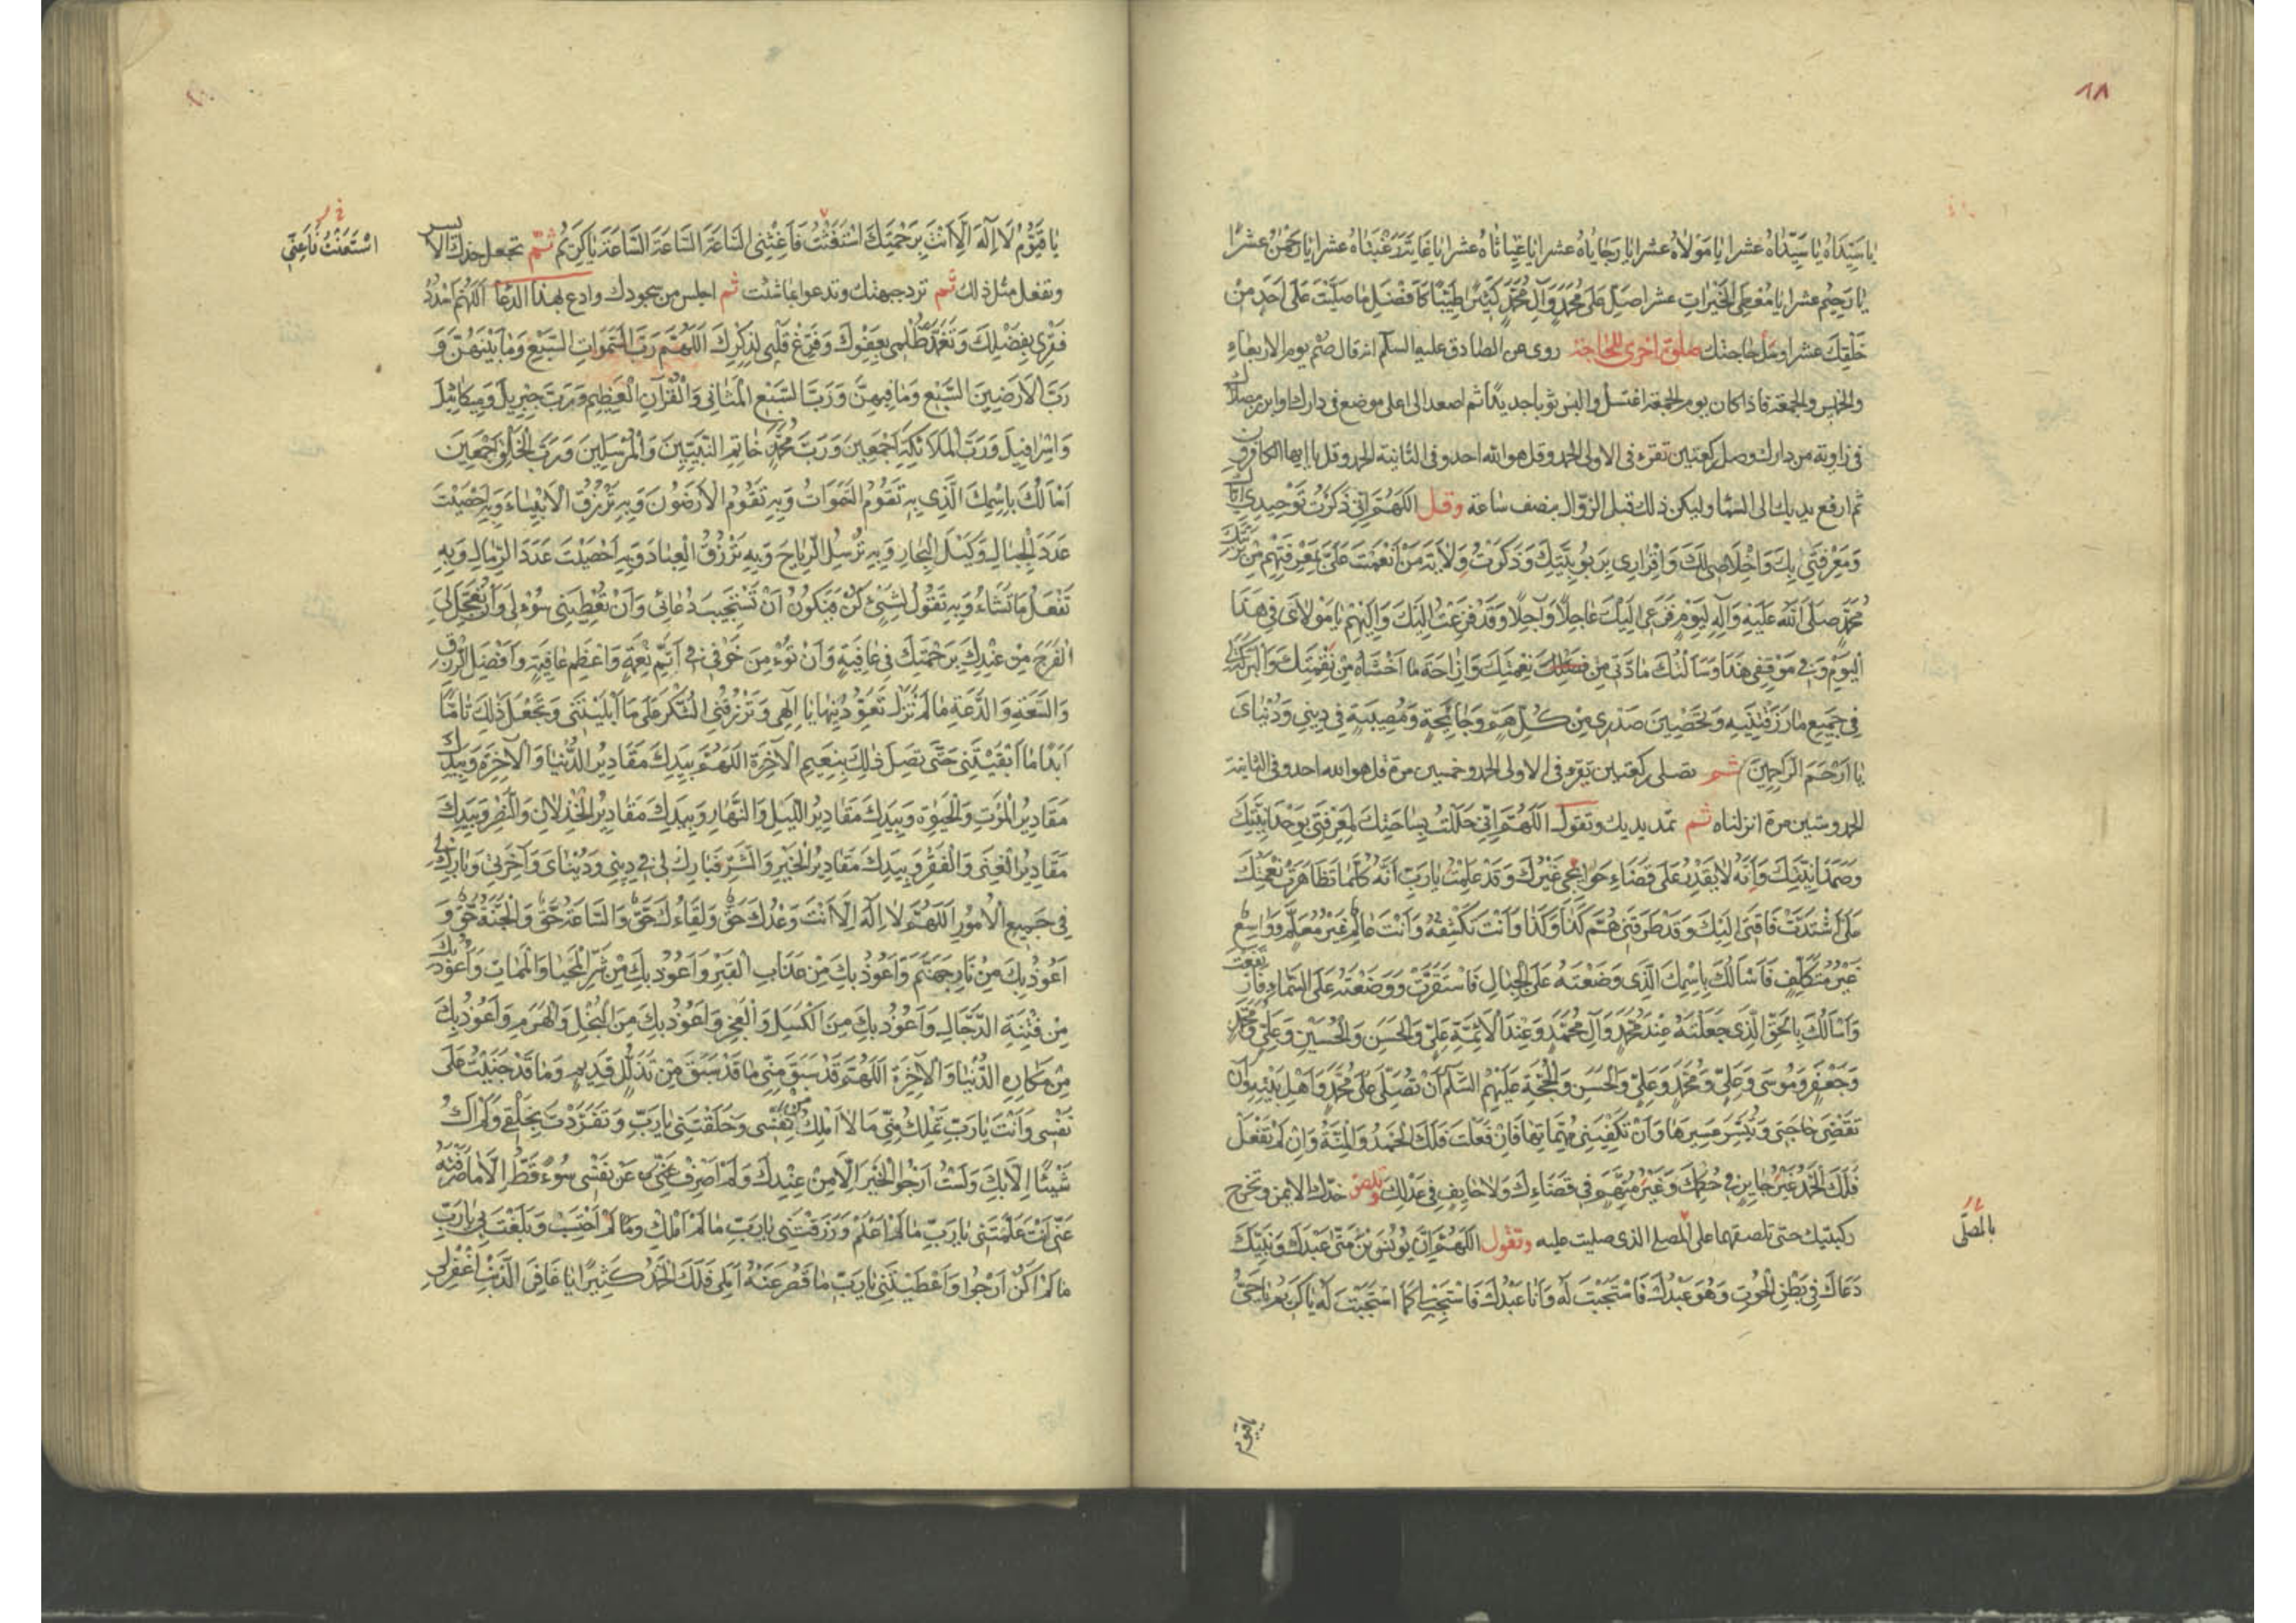 ١٨
يَا سَيِّدَاهُ يَا سَيِّدَاهُ عشرا يَا مَوْلَاهُ عشرا يَا رَجَايَاهُ عشرا يَا غِيَاثَاهُ عشرا يَا غَايَةَ رَغْبَتَاهُ عشرا يَا رَحْمٰنُ عشرًا
يَا رَحِيمُ عشرا يَا مُعْطِيَ الْخَيْرَاتِ عشرا صَلِّ عَلَى مُحَمَّدٍ وَآلِ مُحَمَّدٍ كَثِيرًا طَيِّبًا كَأَفْضَلِ مَا صَلَّيْتَ عَلَى أَحَدٍ مِنْ
خَلْقِكَ عشرا وسَل حاجتك صلوة اخرى للحاجة روى عن الصادق عليه السلم انه قال صُم يوم الاربعاء
والخميس والجمعة فاذا كان يوم الجمعة اغتسل والبس ثوبا جديدا ثم اصعد الى اعلى موضع فى دارك وابرز مصلاك
فى زاوية من دارك وصل ركعتين تقرء فى الاولى الحمد وقل هو الله احد وفى الثانية الحمد وقل يا ايها الكافرون
ثم ارفع يديك الى السماء وليكن ذلك قبل الزوال بنصف ساعة وقل اَللّٰهُمَّ اِنِّي ذَكَرْتُ تَوْحِيدِي اِيَّاكَ
وَمَعْرِفَتِي بِكَ وَاِخْلَاصِي لَكَ وَاِقْرَارِي بِرَبُوبِيَّتِكَ وَذَكَرْتُ وِلَايَةَ مَنْ اَنْعَمْتَ عَلَيَّ بِمَعْرِفَتِهِمْ مِنْ بَرِيَّتِكَ
مُحَمَّدٍ صَلَّى اللّٰهُ عَلَيْهِ وَآلِهِ لِيَوْمِ فَزَعِي اِلَيْكَ عَاجِلًا وَآجِلًا وَقَدْ فَزِعْتُ اِلَيْكَ وَاِلَيْهِمْ يَا مَوْلَايَ فِي هٰذَا
الْيَوْمِ وَفِي مَوْقِفِي هٰذَا وَسَاَلْتُكَ مَادَّتِي مِنْ نِعْمَتِكَ وَاِزَاحَةَ مَا اَخْشَاهُ مِنْ نِقْمَتِكَ وَالْبَرَكَةَ لِي
فِي جَمِيعِ مَا رَزَقْتَنِيهِ وَتَحْصِينَ صَدْرِي مِنْ كُلِّ هَمٍّ وَجَائِحَةٍ وَمُصِيبَةٍ فِي دِينِي وَدُنْيَايَ
يَا اَرْحَمَ الرَّاحِمِينَ ثم تصلى ركعتين تقرء فى الاولى الحمد وخمسين مرة قل هو الله احد وفى الثانية
الحمد وستين مرة انزلناه ثم تمد يديك وتقول اَللّٰهُمَّ اِنِّي حَلَلْتُ بِسَاحَتِكَ لِمَعْرِفَتِي بِوَحْدَانِيَّتِكَ
وَصَمَدَانِيَّتِكَ وَاَنَّهُ لَا يَقْدِرُ عَلَى قَضَاءِ حَوَائِجِي غَيْرُكَ وَقَدْ عَلِمْتُ يَا رَبِّ اَنَّهُ كُلَّمَا تَظَاهَرَتْ نِعْمَتُكَ
عَلَيَّ اشْتَدَّتْ فَاقَتِي اِلَيْكَ وَقَدْ طَرَقَنِي هَمُّ كَذَا وَكَذَا وَاَنْتَ تَكْشِفُهُ وَاَنْتَ عَالِمٌ غَيْرُ مُعَلَّمٍ وَوَاسِعٌ
غَيْرُ مُتَكَلِّفٍ فَاَسْاَلُكَ بِاسْمِكَ الَّذِي وَضَعْتَهُ عَلَى الْجِبَالِ فَاسْتَقَرَّتْ وَوَضَعْتَهُ عَلَى السَّمَاءِ فَارْتَفَعَتْ
وَاَسْاَلُكَ بِالْحَقِّ الَّذِي جَعَلْتَهُ عِنْدَ مُحَمَّدٍ وَآلِ مُحَمَّدٍ وَعِنْدَ الْاَئِمَّةِ عَلِيٍّ وَالْحَسَنِ وَالْحُسَيْنِ وَعَلِيٍّ وَمُحَمَّدٍ
وَجَعْفَرٍ وَمُوسَى وَعَلِيٍّ وَمُحَمَّدٍ وَعَلِيٍّ وَالْحَسَنِ وَالْحُجَّةِ عَلَيْهِمُ السَّلَمُ اَنْ تُصَلِّيَ عَلَى مُحَمَّدٍ وَاَهْلِ بَيْتِهِ وَاَنْ
تَقْضِيَ حَاجَتِي وَتُيَسِّرَ عَسِيرَهَا وَاَنْ تَكْفِيَنِي مُهِمَّاتِهَا فَاِنْ فَعَلْتَ فَلَكَ الْحَمْدُ وَالْمِنَّةُ وَاِنْ لَمْ تَفْعَلْ
فَلَكَ الْحَمْدُ غَيْرُ جَايِرٍ فِي حُكْمِكَ وَغَيْرُ مُتَّهَمٍ فِي قَضَاءِكَ وَلَا حَايِفٍ فِي عَدْلِكَ وتلصق خدك الايمن وتخرج
ركبتيك حتى تلصقهما على المصلى الذى صليت عليه وتقول اَللّٰهُمَّ اِنَّ يُونُسَ بْنَ مَتَّى عَبْدَكَ وَنَبِيَّكَ
بالمصلّى
دَعَاكَ فِي بَطْنِ الْحُوتِ وَهُوَ عَبْدُكَ فَاسْتَجَبْتَ لَهُ وَاَنَا عَبْدُكَ فَاسْتَجِبْ لِي كَمَا اسْتَجَبْتَ لَهُ يَا كَرِيمُ يَا حَيُّ
يا قيوم
يَا قَيُّومُ لَا اِلٰهَ اِلَّا اَنْتَ بِرَحْمَتِكَ اسْتَغَثْتُ فَاَغِثْنِي السَّاعَةَ السَّاعَةَ السَّاعَةَ يَا كَرِيمُ ثم تجعل خدك الايسر
اسْتَعَنْتُ فَاَعِنِّي
وتفعل مثل ذلك ثم ترد جبهتك وتدعوا بما شئت ثم اجلس من سجودك وادع بهذا الدعا اَللّٰهُمَّ اسْدُدْ
فَقْرِي بِفَضْلِكَ وَتَغَمَّدْ ظُلْمِي بِعَفْوِكَ وَفَرِّغْ قَلْبِي لِذِكْرِكَ اَللّٰهُمَّ رَبَّ السَّمٰوَاتِ السَّبْعِ وَمَا بَيْنَهُنَّ وَ
رَبَّ الْاَرَضِينَ السَّبْعِ وَمَا فِيهِنَّ وَرَبَّ السَّبْعِ الْمَثَانِي وَالْقُرْآنِ الْعَظِيمِ وَرَبَّ جِبْرِيلَ وَمِيكَائِيلَ
وَاِسْرَافِيلَ وَرَبَّ الْمَلَائِكَةِ اَجْمَعِينَ وَرَبَّ مُحَمَّدٍ خَاتِمِ النَّبِيِّينَ وَالْمُرْسَلِينَ وَرَبَّ الْخَلْقِ اَجْمَعِينَ
اَسْاَلُكَ بِاسْمِكَ الَّذِي بِهِ تَقُومُ السَّمَوَاتُ وَبِهِ تَقُومُ الْاَرَضُونَ وَبِهِ تَرْزُقُ الْاَحْيَاءَ وَبِهِ اَحْصَيْتَ
عَدَدَ الْجِبَالِ وَكَيْلَ الْبِحَارِ وَبِهِ تُرْسِلُ الرِّيَاحَ وَبِهِ تَرْزُقُ الْعِبَادَ وَبِهِ اَحْصَيْتَ عَدَدَ الرِّمَالِ وَبِهِ
تَفْعَلُ مَا تَشَاءُ وَبِهِ تَقُولُ لِشَيْءٍ كُنْ فَيَكُونُ اَنْ تَسْتَجِيبَ دُعَائِي وَاَنْ تُعْطِيَنِي سُؤْلِي وَاَنْ تُعَجِّلَ لِيَ
الْفَرَجَ مِنْ عِنْدِكَ بِرَحْمَتِكَ فِي عَافِيَةٍ وَاَنْ تُؤْمِنَ خَوْفِي فِي اَتَمِّ نِعْمَةٍ وَاَعْظَمِ عَافِيَةٍ وَاَفْضَلِ الرِّزْقِ
وَالسَّعَةِ وَالدَّعَةِ مَا لَمْ تَزَلْ تُعَوِّدُنِيهَا يَا اِلٰهِي وَتَرْزُقَنِي الشُّكْرَ عَلَى مَا اَبْلَيْتَنِي وَتَجْعَلَ ذٰلِكَ تَامًّا
اَبَدًا مَا اَبْقَيْتَنِي حَتَّى تَصِلَ ذٰلِكَ بِنَعِيمِ الْآخِرَةِ اَللّٰهُمَّ بِيَدِكَ مَقَادِيرُ الدُّنْيَا وَالْآخِرَةِ وَبِيَدِكَ
مَقَادِيرُ الْمَوْتِ وَالْحَيٰوةِ وَبِيَدِكَ مَقَادِيرُ اللَّيْلِ وَالنَّهَارِ وَبِيَدِكَ مَقَادِيرُ الْخِذْلَانِ وَالنَّصْرِ وَبِيَدِكَ
مَقَادِيرُ الْغِنَى وَالْفَقْرِ وَبِيَدِكَ مَقَادِيرُ الْخَيْرِ وَالشَّرِّ فَبَارِكْ لِي فِي دِينِي وَدُنْيَايَ وَآخِرَتِي وَبَارِكْ لِي
فِي جَمِيعِ الْاُمُورِ اَللّٰهُمَّ لَا اِلٰهَ اِلَّا اَنْتَ وَعْدُكَ حَقٌّ وَلِقَاءُكَ حَقٌّ وَالسَّاعَةُ حَقٌّ وَالْجَنَّةُ حَقٌّ وَ
اَعُوذُ بِكَ مِنْ نَارِ جَهَنَّمَ وَاَعُوذُ بِكَ مِنْ عَذَابِ الْقَبْرِ وَاَعُوذُ بِكَ مِنْ شَرِّ الْمَحْيَا وَالْمَمَاتِ وَاَعُوذُ بِكَ
مِنْ فِتْنَةِ الدَّجَّالِ وَاَعُوذُ بِكَ مِنَ الْكَسَلِ وَالْعَجْزِ وَاَعُوذُ بِكَ مِنَ الْبُخْلِ وَالْهَرَمِ وَاَعُوذُ بِكَ
مِنْ مَكَارِهِ الدُّنْيَا وَالْآخِرَةِ اَللّٰهُمَّ قَدْ سَبَقَ مِنِّي مَا قَدْ سَبَقَ مِنْ زَلَلٍ قَدِيمٍ وَمَا قَدْ جَنَيْتُ عَلَى
نَفْسِي وَاَنْتَ يَا رَبِّ تَمْلِكُ مِنِّي مَا لَا اَمْلِكُ مِنْ نَفْسِي وَخَلَقْتَنِي يَا رَبِّ وَتَفَرَّدْتَ بِخَلْقِي وَلَمْ اَكُ
شَيْئًا اِلَّا بِكَ وَلَسْتُ اَرْجُو الْخَيْرَ اِلَّا مِنْ عِنْدِكَ وَلَمْ اَصْرِفْ عَنْ نَفْسِي سُوءً قَطُّ اِلَّا مَا صَرَفْتَهُ
عَنِّي اَنْتَ عَلَّمْتَنِي يَا رَبِّ مَا لَمْ اَعْلَمْ وَرَزَقْتَنِي يَا رَبِّ مَا لَمْ اَمْلِكْ وَمَا لَمْ اَحْتَسِبْ وَبَلَغْتَ بِي يَا رَبِّ
مَا لَمْ اَكُنْ اَرْجُوا وَاَعْطَيْتَنِي يَا رَبِّ مَا قَصُرَ عَنْهُ اَمَلِي فَلَكَ الْحَمْدُ كَثِيرًا يَا غَافِرَ الذَّنْبِ اغْفِرْ لِي